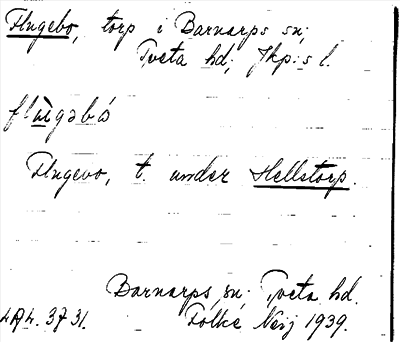 Flugebo, torp i Barnarps sn;
Tveta hd; Jkp:s l.
flùgəbó
Flugevo, t. under Hellstorp.
Barnarps sn; Tveta hd.
Folke Neij 1939.